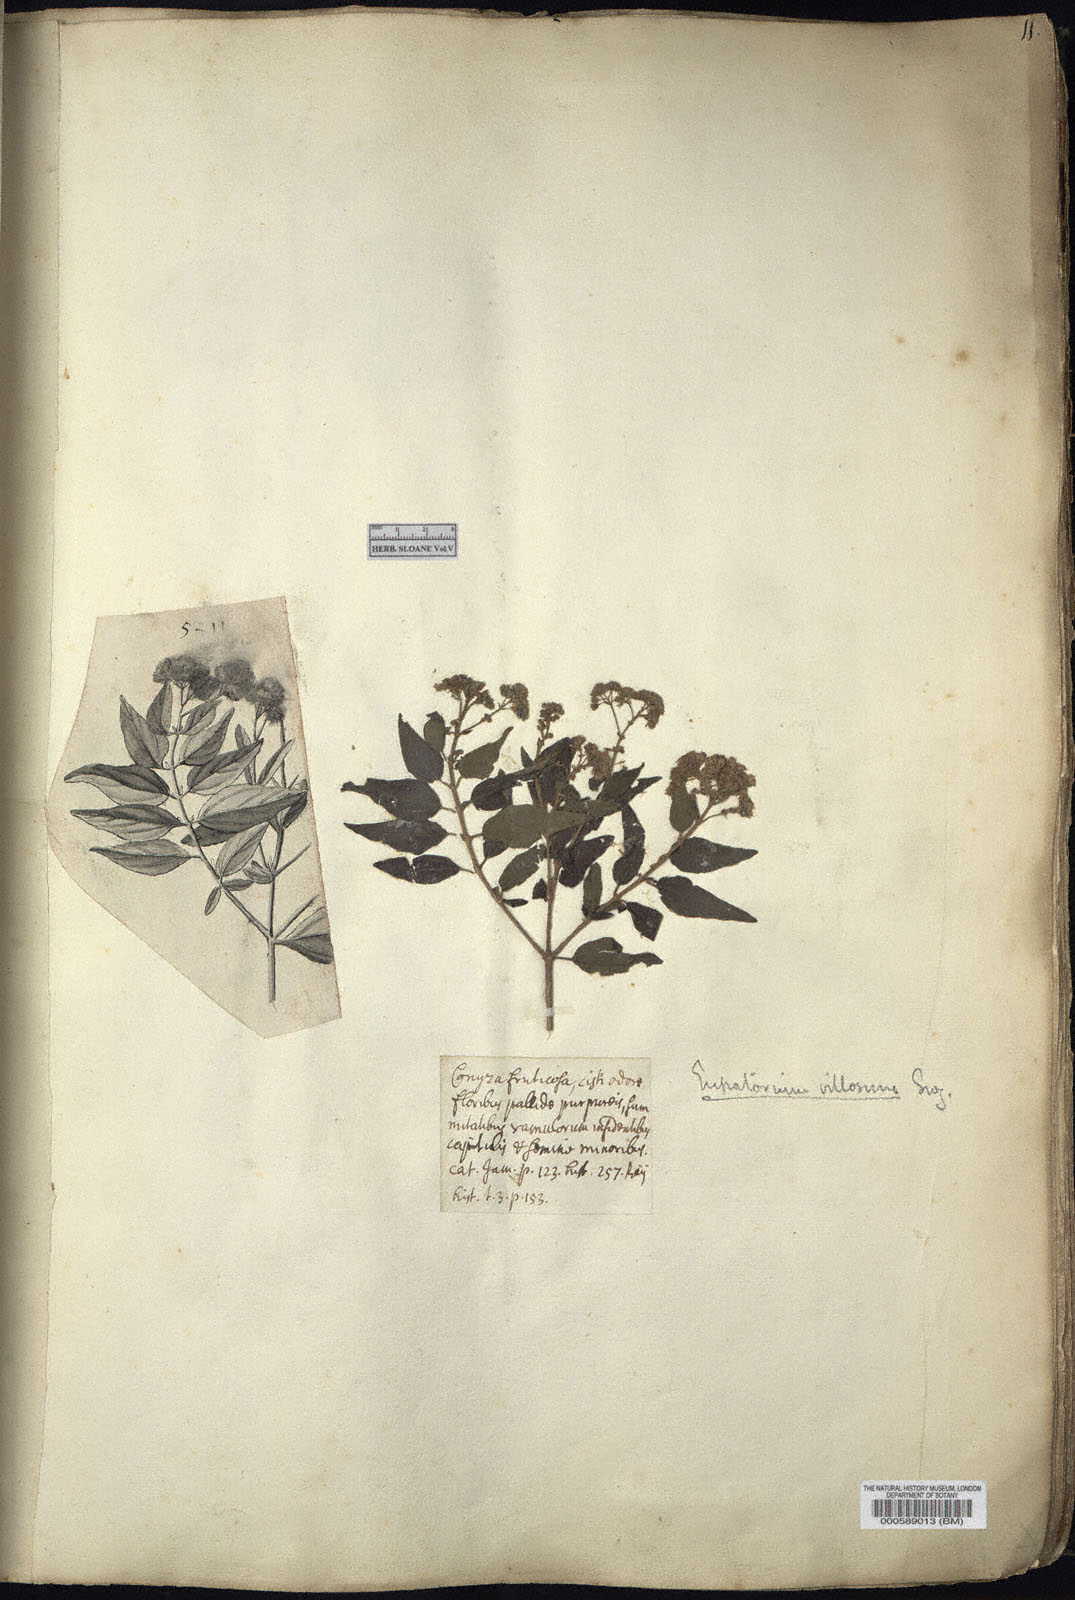 11.
HERB. SLOANE Vol.V
5-11
Conyza fruticosa, cisti odore
floribus pallide purpureis, sum
mitatibus ramulorum insidentibus,
capitulis & semine minoribus.
cat. Jam. p. 123. hist. 257. Raij
hist. t. 3. p. 153.
Eupatorium villosum Swz.
THE NATURAL HISTORY MUSEUM, LONDON
DEPARTMENT OF BOTANY
000589013 (BM)